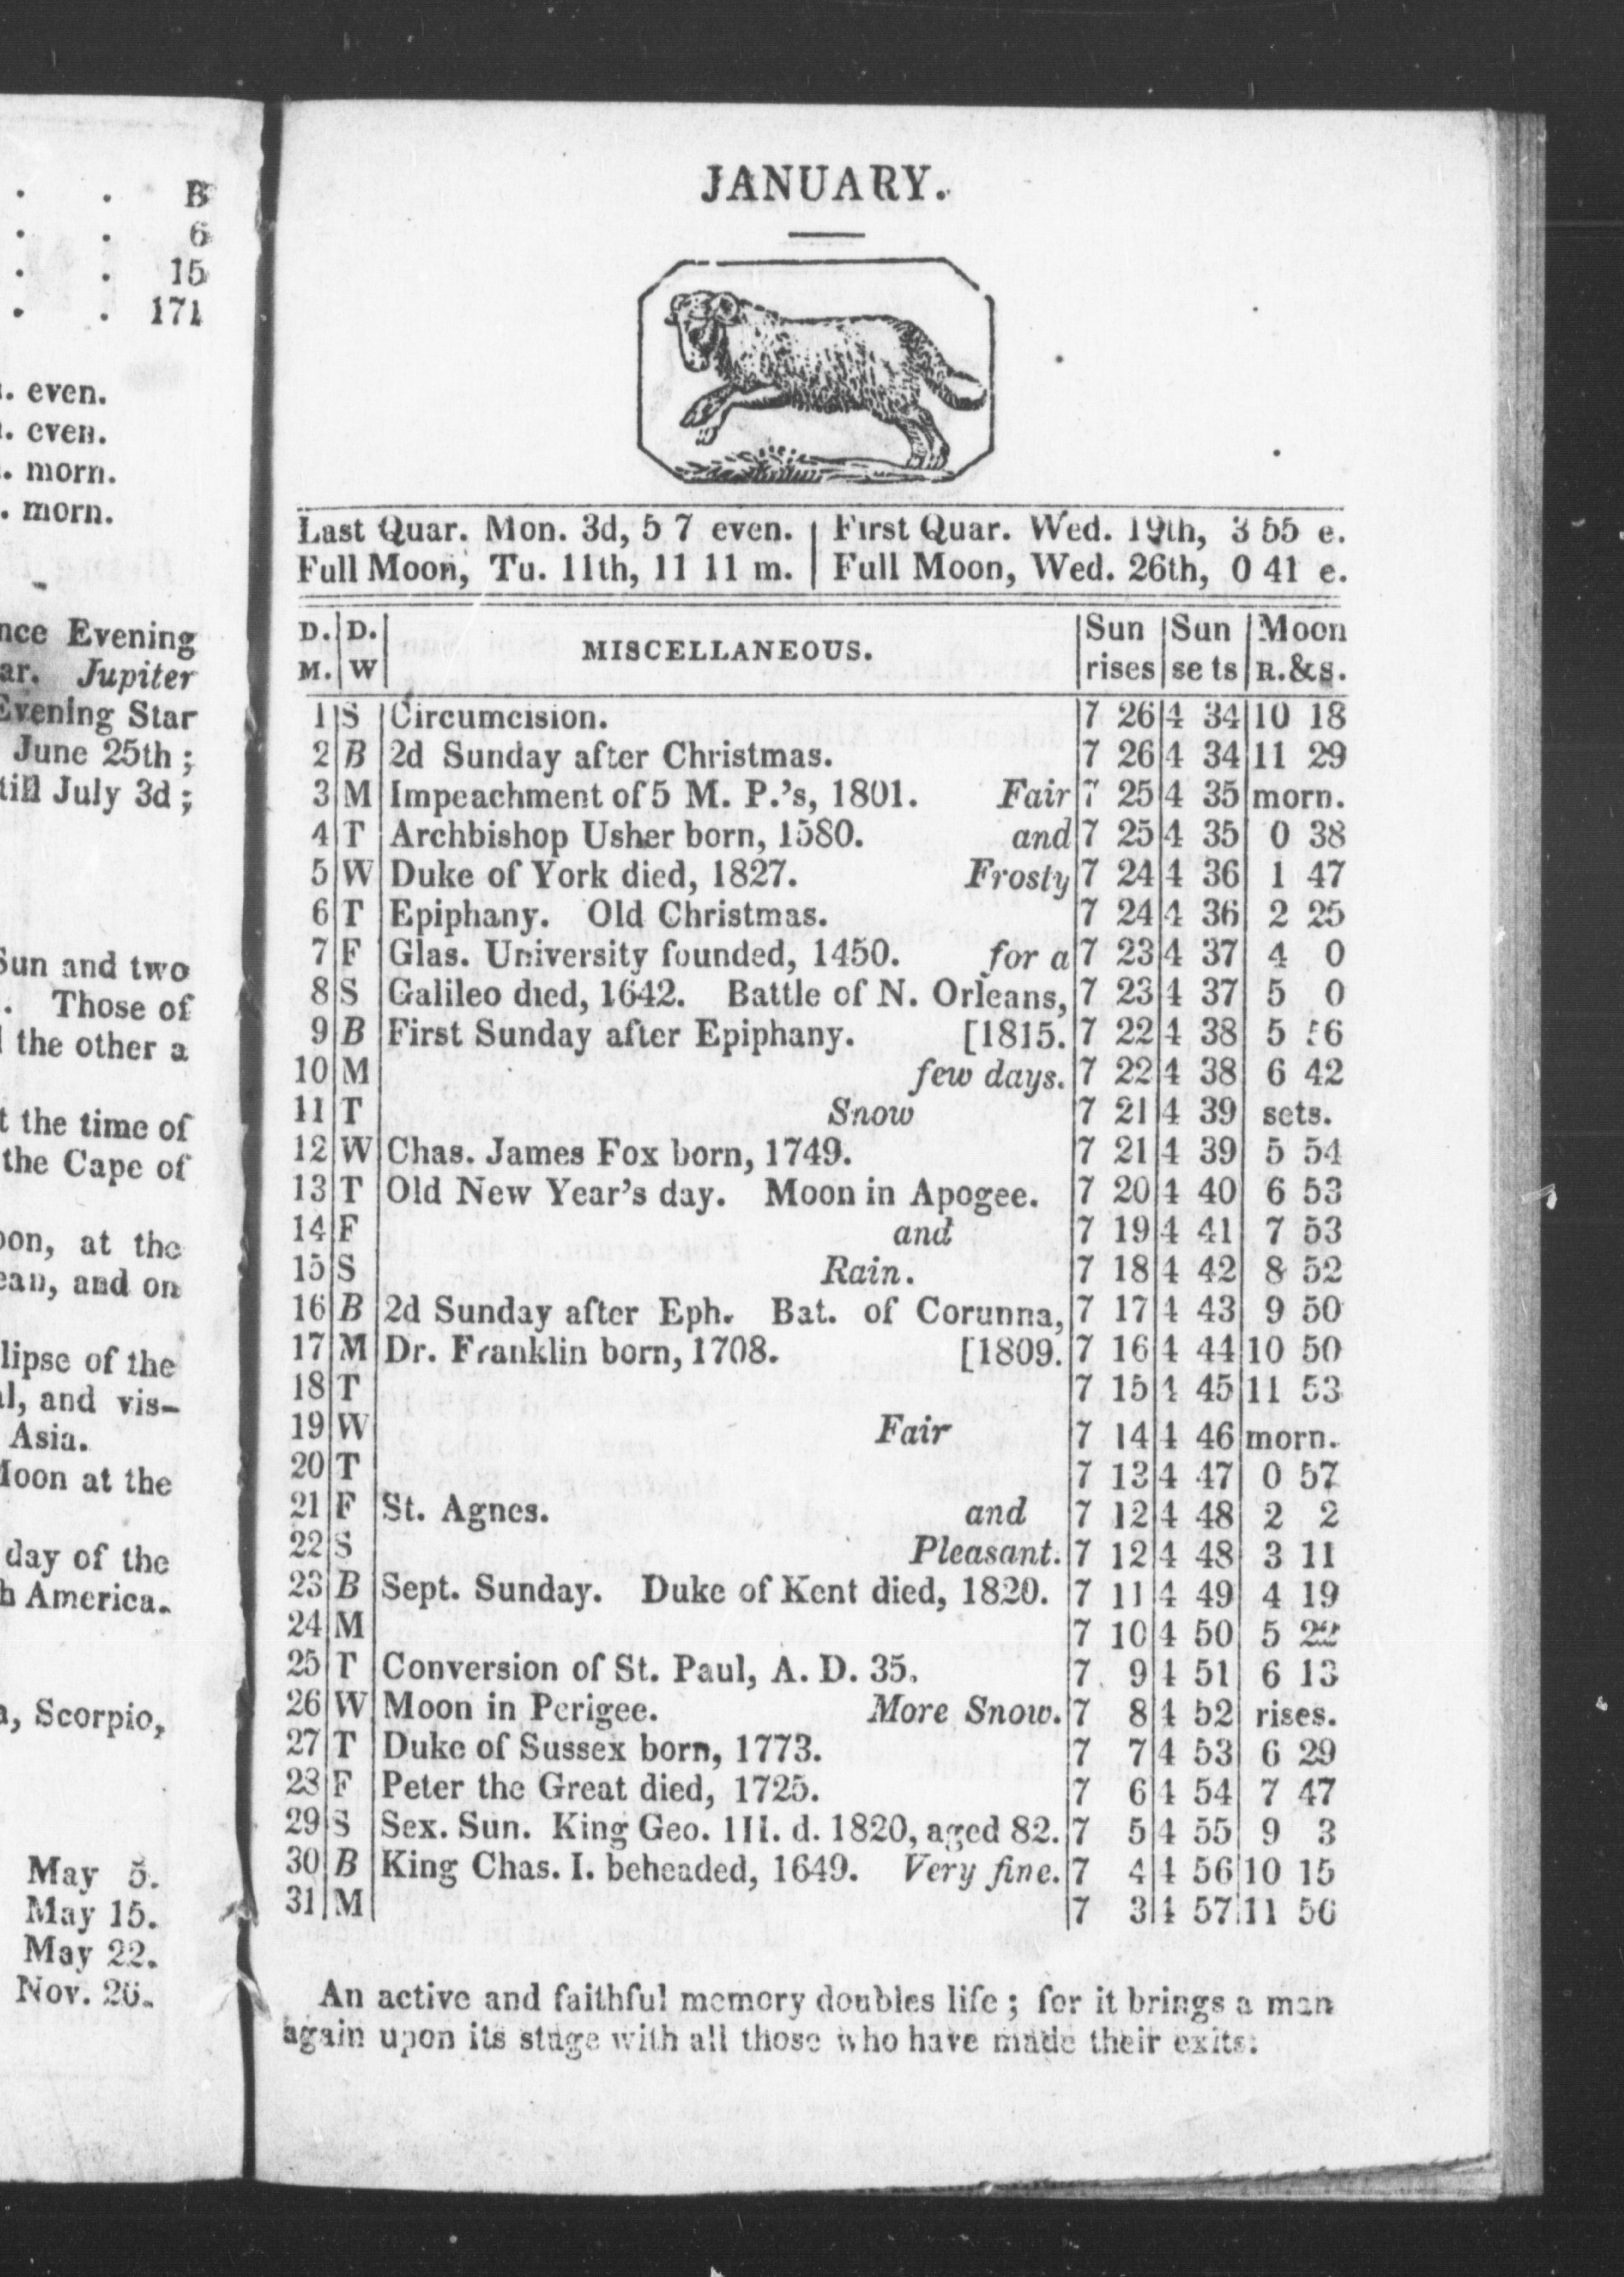 B
6
15
171
even.
even.
morn.
morn.
Evening
Jupiter
Evening Star
June 25th;
till July 3d;
Sun and two
Those of
the other a
the time of
the Cape of
at the
and on
of the
and vis-
Asia.
Moon at the
day of the
America.
Scorpio,
May 5.
May 15.
May 22.
Nov. 26.
JANUARY.
Last Quar. Mon. 3d, 5 7 even. | First Quar. Wed. 19th, 3 55 e.
Full Moon, Tu. 11th, 11 11 m. | Full Moon, Wed. 26th, 0 41 e.
D. D. MISCELLANEOUS. Sun Sun Moon
M. W rises se ts R.&s.
1 S Circumcision. 7 26 4 34 10 18
2 B 2d Sunday after Christmas. 7 26 4 34 11 29
3 M Impeachment of 5 M. P.'s, 1801. Fair 7 25 4 35 morn.
4 T Archbishop Usher born, 1580. and 7 25 4 35 0 38
5 W Duke of York died, 1827. Frosty 7 24 4 36 1 47
6 T Epiphany. Old Christmas. 7 24 4 36 2 25
7 F Glas. University founded, 1450. for a 7 23 4 37 4 0
8 S Galileo died, 1642. Battle of N. Orleans, 7 23 4 37 5 0
9 B First Sunday after Epiphany. [1815. 7 22 4 38 5 56
10 M few days. 7 22 4 38 6 42
11 T Snow 7 21 4 39 sets.
12 W Chas. James Fox born, 1749. 7 21 4 39 5 54
13 T Old New Year's day. Moon in Apogee. 7 20 4 40 6 53
14 F and 7 19 4 41 7 53
15 S Rain. 7 18 4 42 8 52
16 B 2d Sunday after Eph. Bat. of Corunna, 7 17 4 43 9 50
17 M Dr. Franklin born, 1708. [1809. 7 16 4 44 10 50
18 T 7 15 4 45 11 53
19 W Fair 7 14 4 46 morn.
20 T 7 13 4 47 0 57
21 F St. Agnes. and 7 12 4 48 2 2
22 S Pleasant. 7 12 4 48 3 11
23 B Sept. Sunday. Duke of Kent died, 1820. 7 11 4 49 4 19
24 M 7 10 4 50 5 22
25 T Conversion of St. Paul, A. D. 35. 7 9 4 51 6 13
26 W Moon in Perigee. More Snow. 7 8 4 52 rises.
27 T Duke of Sussex born, 1773. 7 7 4 53 6 29
28 F Peter the Great died, 1725. 7 6 4 54 7 47
29 S Sex. Sun. King Geo. III. d. 1820, aged 82. 7 5 4 55 9 3
30 B King Chas. I. beheaded, 1649. Very fine. 7 4 4 56 10 15
31 M 7 3 4 57 11 56
An active and faithful memory doubles life; for it brings a man
again upon its stage with all those who have made their exits.